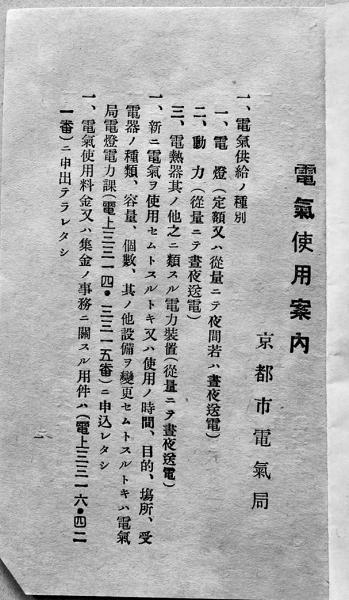 電氣使用案內
京都市電氣局
一、電氣供給ノ種別
一、電燈(定額又ハ從量ニテ夜間若ハ晝夜送電)
二、動力(從量ニテ晝夜送電)
三、電熱器其ノ他之ニ類スル電力裝置(從量ニテ晝夜送電)
一、新ニ電氣ヲ使用セムトスルトキ又ハ使用ノ時間、目的、場所、受
電器ノ種類、容量、個數、其ノ他設備ヲ變更セムトスルトキハ電氣
局電燈電力課(電上三三一四・三三一五番)ニ申込レタシ
一、電氣使用料金又ハ集金ノ事務ニ關スル用件ハ(電上三三一六・四二
一番)ニ申出テラレタシ